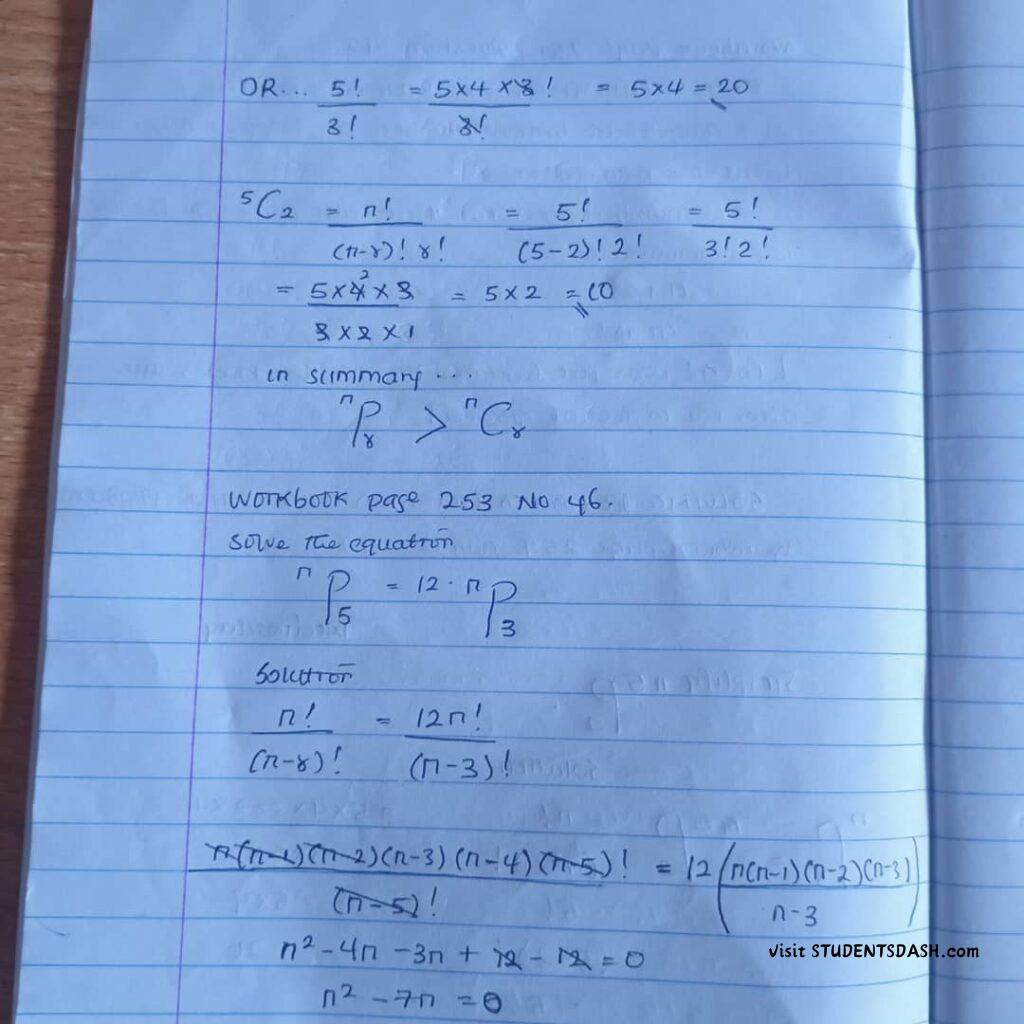 OR... 5!/3! = 5×4×3!/3! = 5×4 = 20
⁵C₂ = n!/(n-r)! r! = 5!/(5-2)! 2! = 5!/3! 2!
= 5×4²×3/3×2×1 = 5×2 = 10
in summary...
ⁿPᵣ > ⁿCᵣ
Workbook page 253 No 46.
Solve the equation
ⁿP₅ = 12 · ⁿP₃
Solution
n!/(n-r)! = 12n!/(n-3)!
n(n-1)(n-2)(n-3)(n-4)(n-5)!/(n-5)! = 12(n(n-1)(n-2)(n-3)/n-3)
n² - 4n - 3n + 12 - 12 = 0
n² - 7n = 0
visit STUDENTSDASH.com